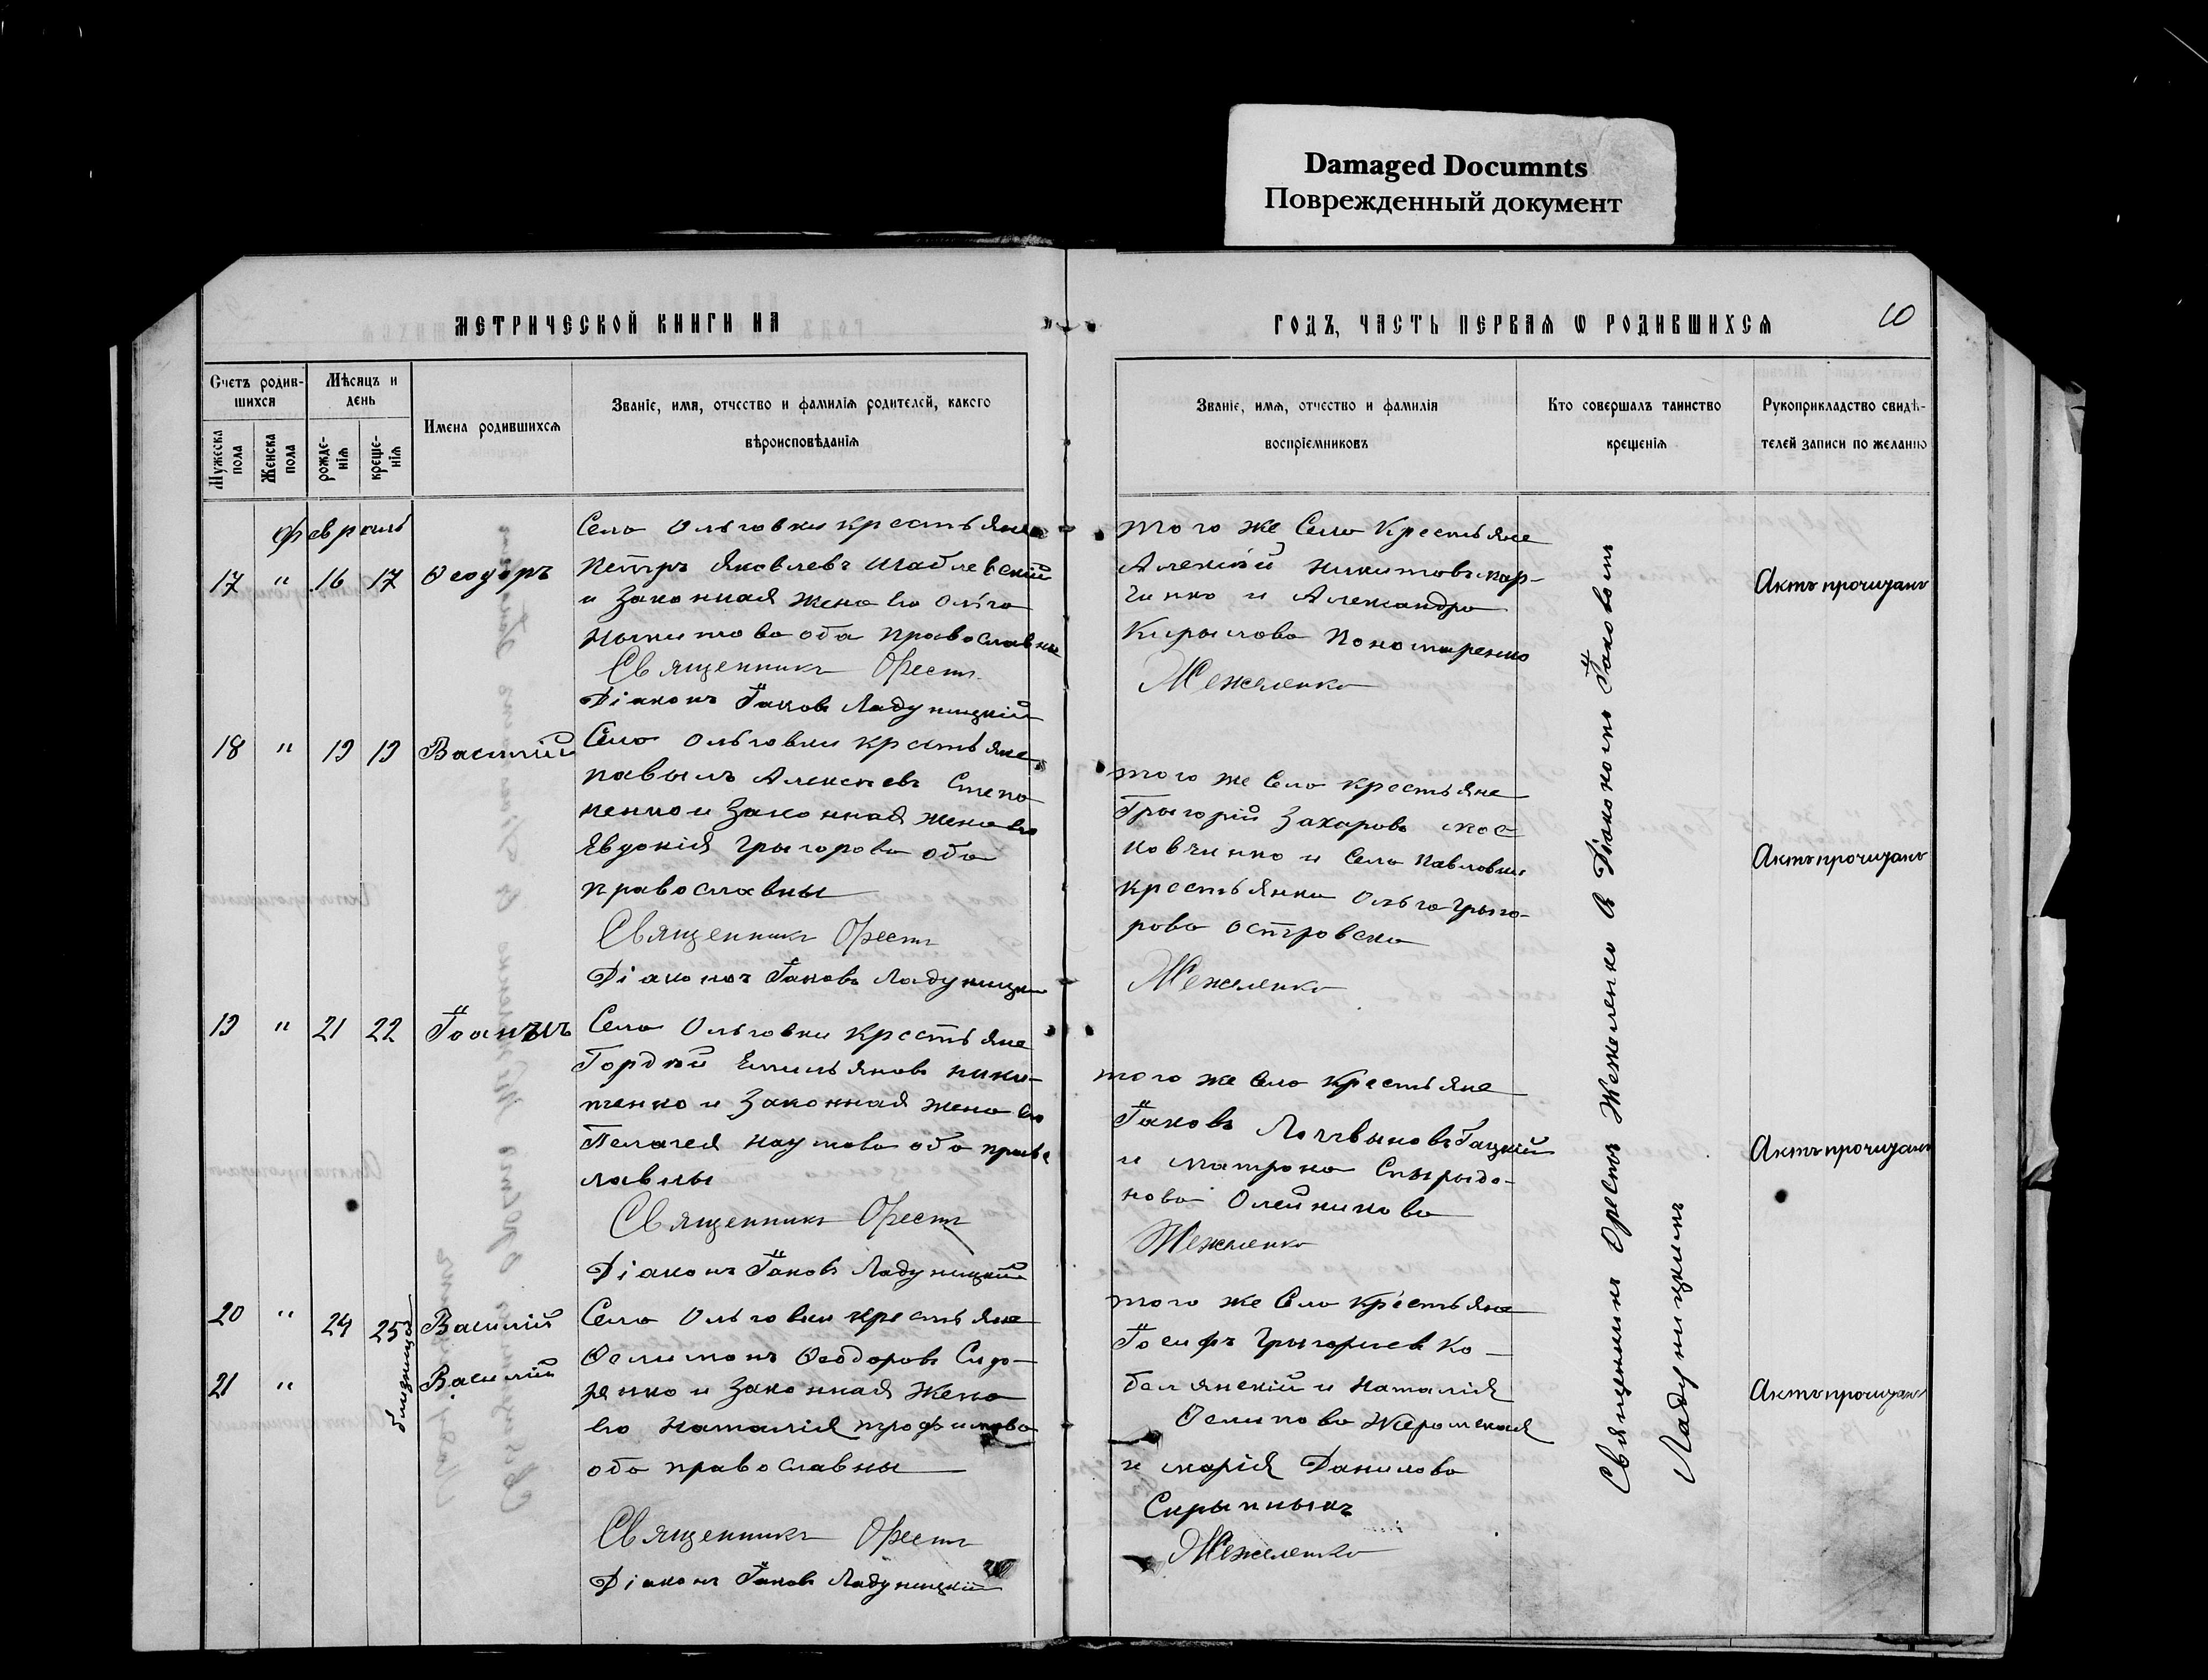 Damaged Documnts
Поврежденный документ
МЕТРИЧЕСКОЙ КНИГИ НА
ГОДЪ, ЧАСТЬ ПЕРВАЯ Ѡ РОДИВШИХСЯ
10
Счетъ родив-
шихся
Мѣсяцъ и
день
Мужеска
пола
Женска
пола
рожде-
нія
креще-
нія
Имена родившихся
Званіе, имя, отчество и фамилія родителей, какого
вѣроисповѣданія
Званіе, имя, отчество и фамилія
воспріемниковъ
Кто совершалъ таинство
крещенія
Рукоприкладство свидѣ-
телей записи по желанію
февраль
17 " 16 17 Ѳеодоръ
Села Ольговки крестьяне
Петръ Яковлевъ Шаблевскій
и Законная жена его Ольга
Никитова оба православны
Священникъ Орестъ
Діаконъ Іаковъ Ладуницкій
того же Села Крестьяне
Алексій Никитовъ Мар-
ченко и Александра
Кирылова Пономаренко
Межеленко
Актъ прочитанъ
18 " 19 19 Василій
Села Ольговки крестьяне
павылъ Алексѣевъ Степа
ненко и Законная жена его
Явдокія Грыгорова оба
православны
Священникъ Орестъ
Діаконъ Іаковъ Ладуницкій
того же Села крестьяне
Грыгорій Захаровъ Мос
ковченко и Села Павловки
крестьянка Ольга Грыго-
рова Островска
Межеленко
Актъ прочитанъ
19 " 21 22 Іоаннъ
Села Ольговки Крестьяне
Гордѣй Емильяновъ Ники-
тенко и Законная жена его
Пелагея Наумова оба право
лавны
Священникъ Орестъ
Діаконъ Іаковъ Ладуницкій
того же Села крестьяне
Іаковъ Логвыновъ Гацкій
и Матрона Спырыдо-
нова Олейникова
Межеленко
Актъ прочитанъ
20 " 24 25 Василій
21 " близнецы Василій
Села Ольговки крестьяне
Ѳилимонъ Ѳеодоровъ Сидо-
ренко и Законная жена
его Наталія трофимова
оба православны
Священникъ Орестъ
Діаконъ Іаковъ Ладуницкій
того же Села крестьяне
Іосифъ Грыгориевъ Ко-
балянскій и Наталія
Ѳилипова
и Марія Данилова
Скрыпныкъ
Межеленко
Актъ прочитанъ
Священникъ Орестъ Межеленко съ Діакономъ Іаковомъ
Ладуницкимъ